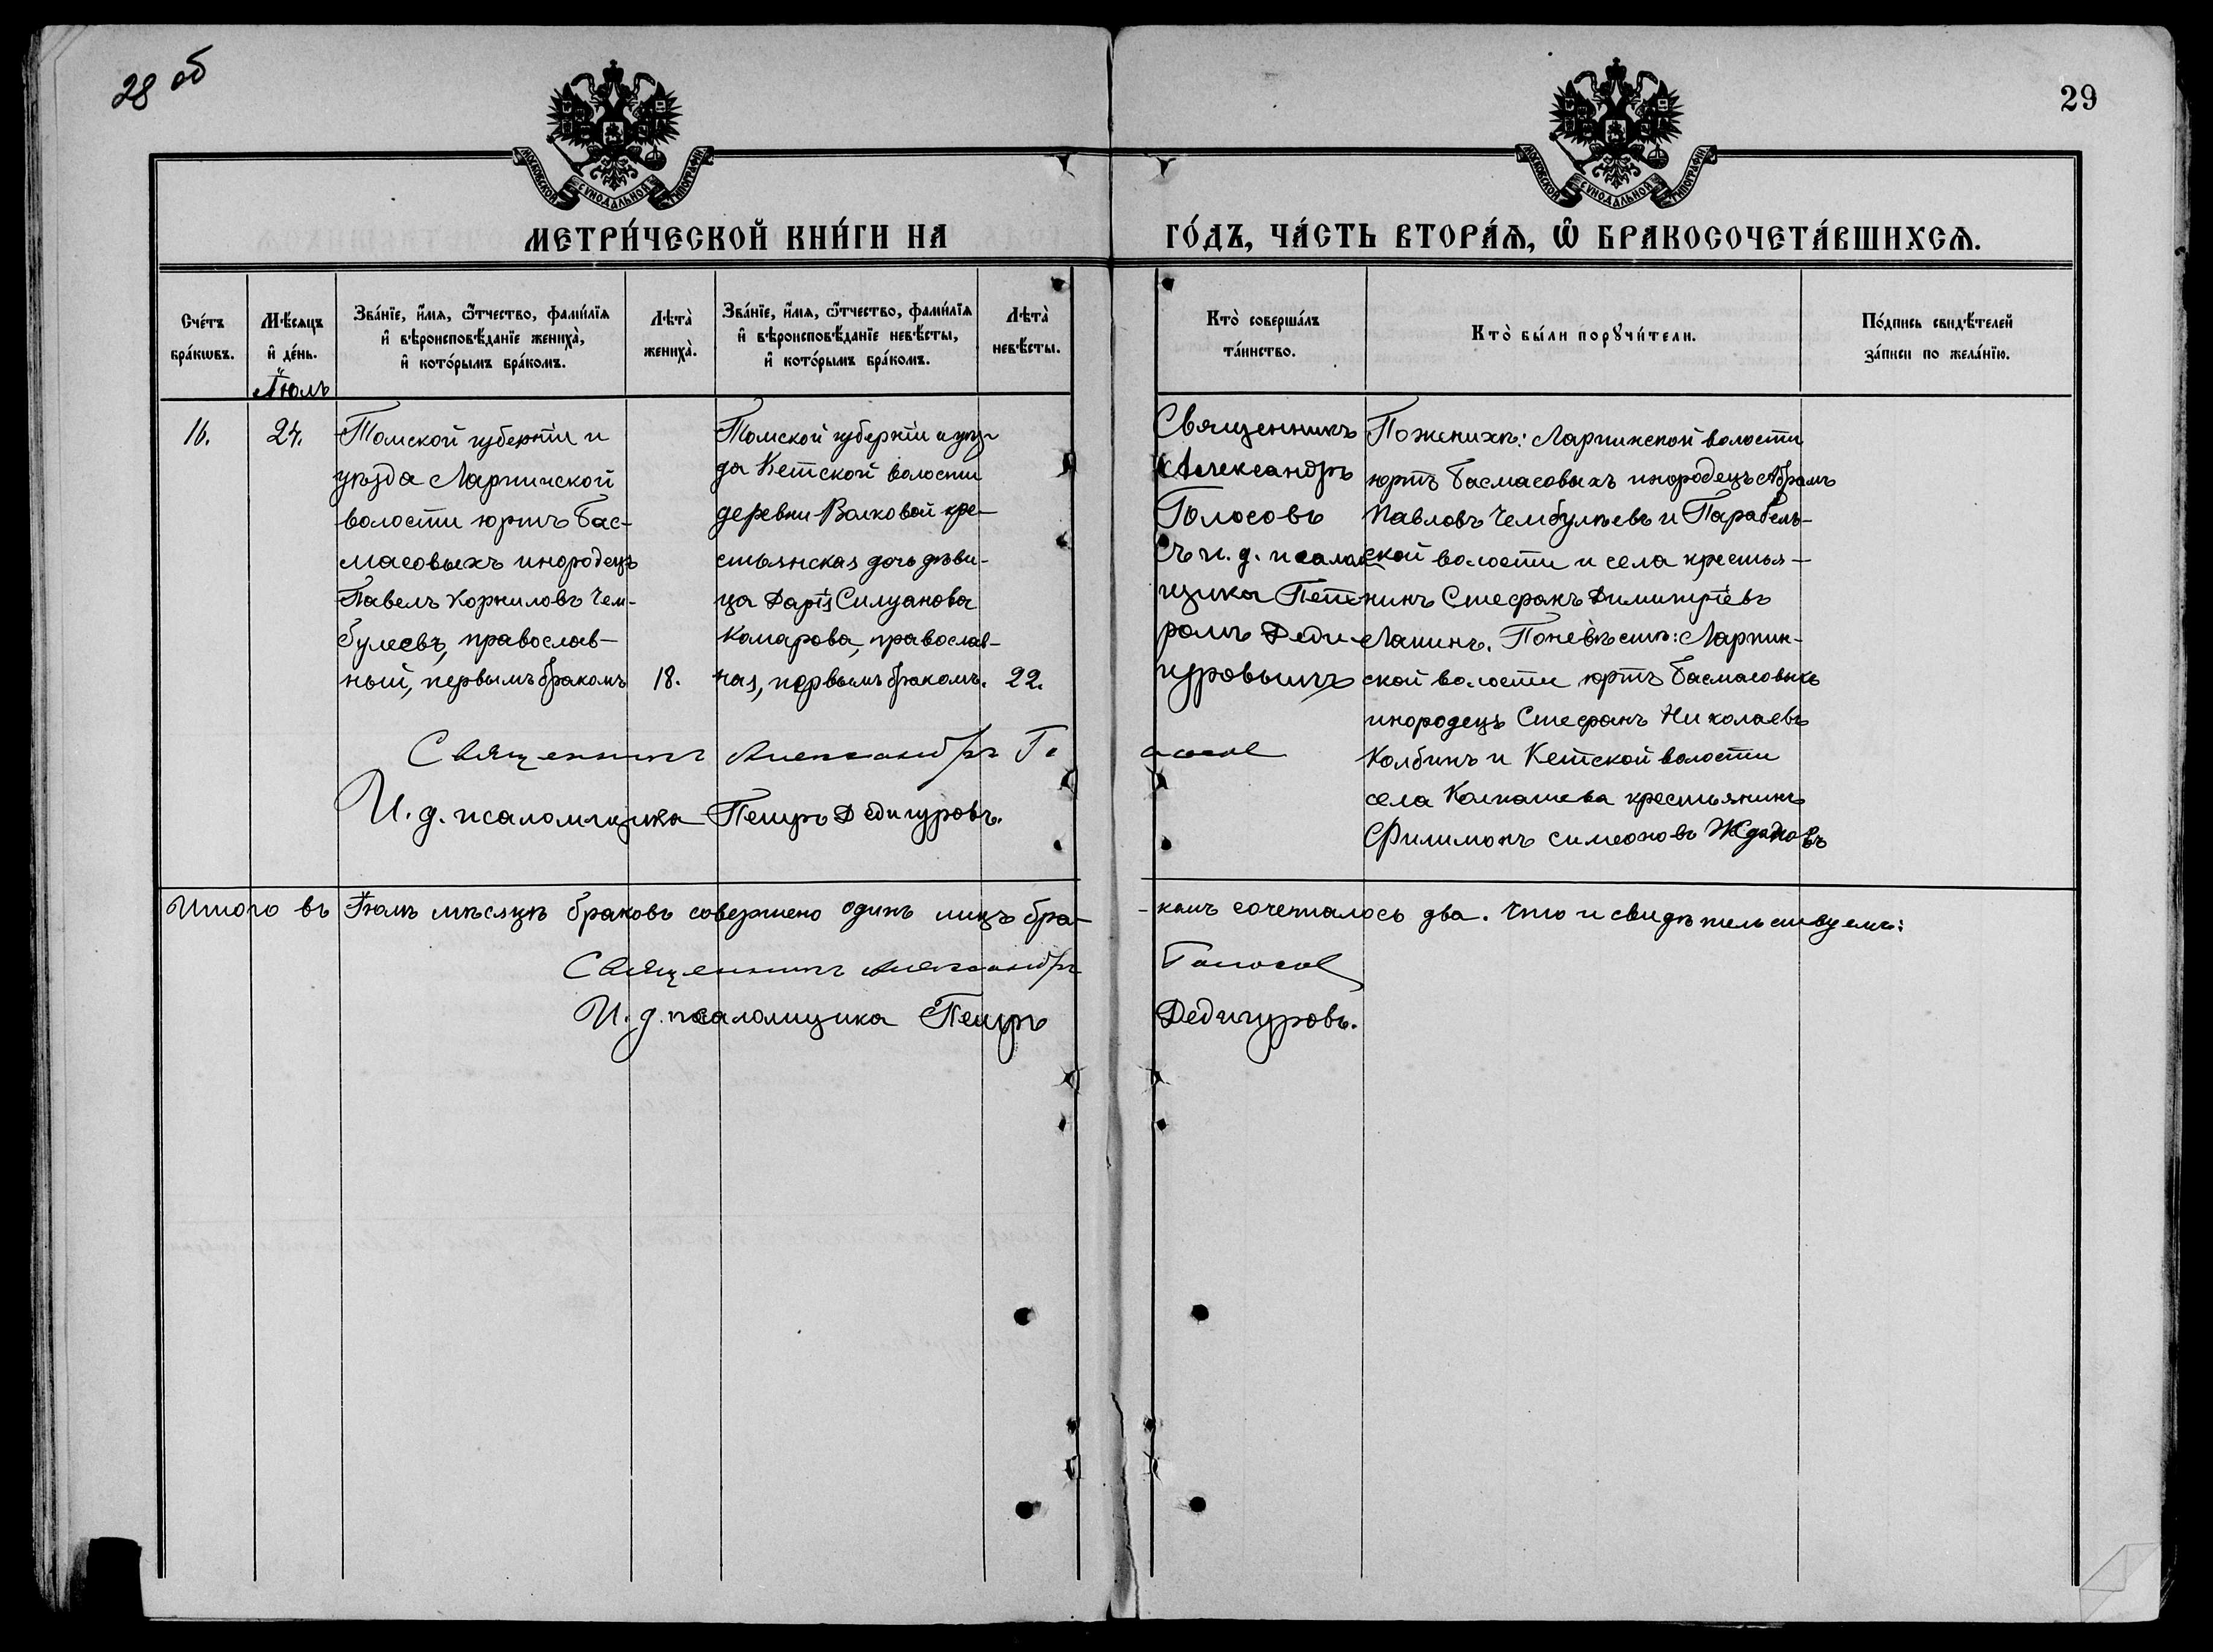 28 об
29
МОСКОВСКОЙ СѴНОДАЛЬНОЙ ТИПОГРАФІИ
МОСКОВСКОЙ СѴНОДАЛЬНОЙ ТИПОГРАФІИ
МЕТРИ́ЧЕСКОЙ КНИ́ГИ НА
ГО́ДЪ, ЧА́СТЬ ВТОРА́Ѧ, Ѽ БРАКОСОЧЕТА́ВШИХСѦ.
Сче́тъ
бра́кѡвъ.
Мѣ́сяцъ
и҆ де́нь.
Іюль
Зва́нїе, и҆́мя, ѻ҆́тчество, фами́лїя
и҆ вѣроисповѣ́данїе жениха̀,
и҆ кото́рымъ бра́комъ.
Лѣта̀
жениха̀.
Зва́нїе, и҆́мя, ѻ҆́тчество, фами́лїя
и҆ вѣроисповѣ́данїе невѣ́сты,
и҆ кото́рымъ бра́комъ.
Лѣта̀
невѣ́сты.
Кто̀ соверша́лъ
та́инство.
Кто̀ бы́ли порꙋчи́тели.
По́дпись свидѣ́телей
за́писи по жела́нїю.
16.
24.
Томской губерніи и
уѣзда Ларпинской
волости юртъ Бас-
масовыхъ инородецъ
Павелъ Корниловъ Чем-
булеевъ, православ-
ный, первымъ бракомъ
18.
Томской губерніи и уѣз-
да Кетской волости
деревни Волковой кре-
стьянская дочь дѣви-
ца Дарія Силуанова
Комарова, православ-
ная, первымъ бракомъ.
22.
Священникъ
Александръ
Голосовъ
съ и. д. псалом-
щика Пет-
ромъ Деди-
гуровымъ
По женихѣ: Ларпинской волости
юртъ Басмасовыхъ инородецъ Абрамъ
Павловъ Чембулѣевъ и Парабель-
ской волости и села крестья-
нинъ Стефанъ Димитріевъ
Лапинъ. По невѣстѣ: Ларпин-
ской волости юртъ Басмасовыхъ
инородецъ Стефанъ Николаевъ
Колбинъ и Кетской волости
села Колпашева крестьянинъ
Филимонъ Симеоновъ Ждановъ
Священникъ Александръ Голосов
И. д. псаломщика Петръ Дедигуровъ.
Итого въ Іюлѣ мѣсяцѣ браковъ совершено одинъ лицъ бра-
-комъ сочеталось два. Что и свидѣтельствуемъ:
Священникъ Александръ Голосов
И. д. псаломщика Петръ Дедигуровъ.